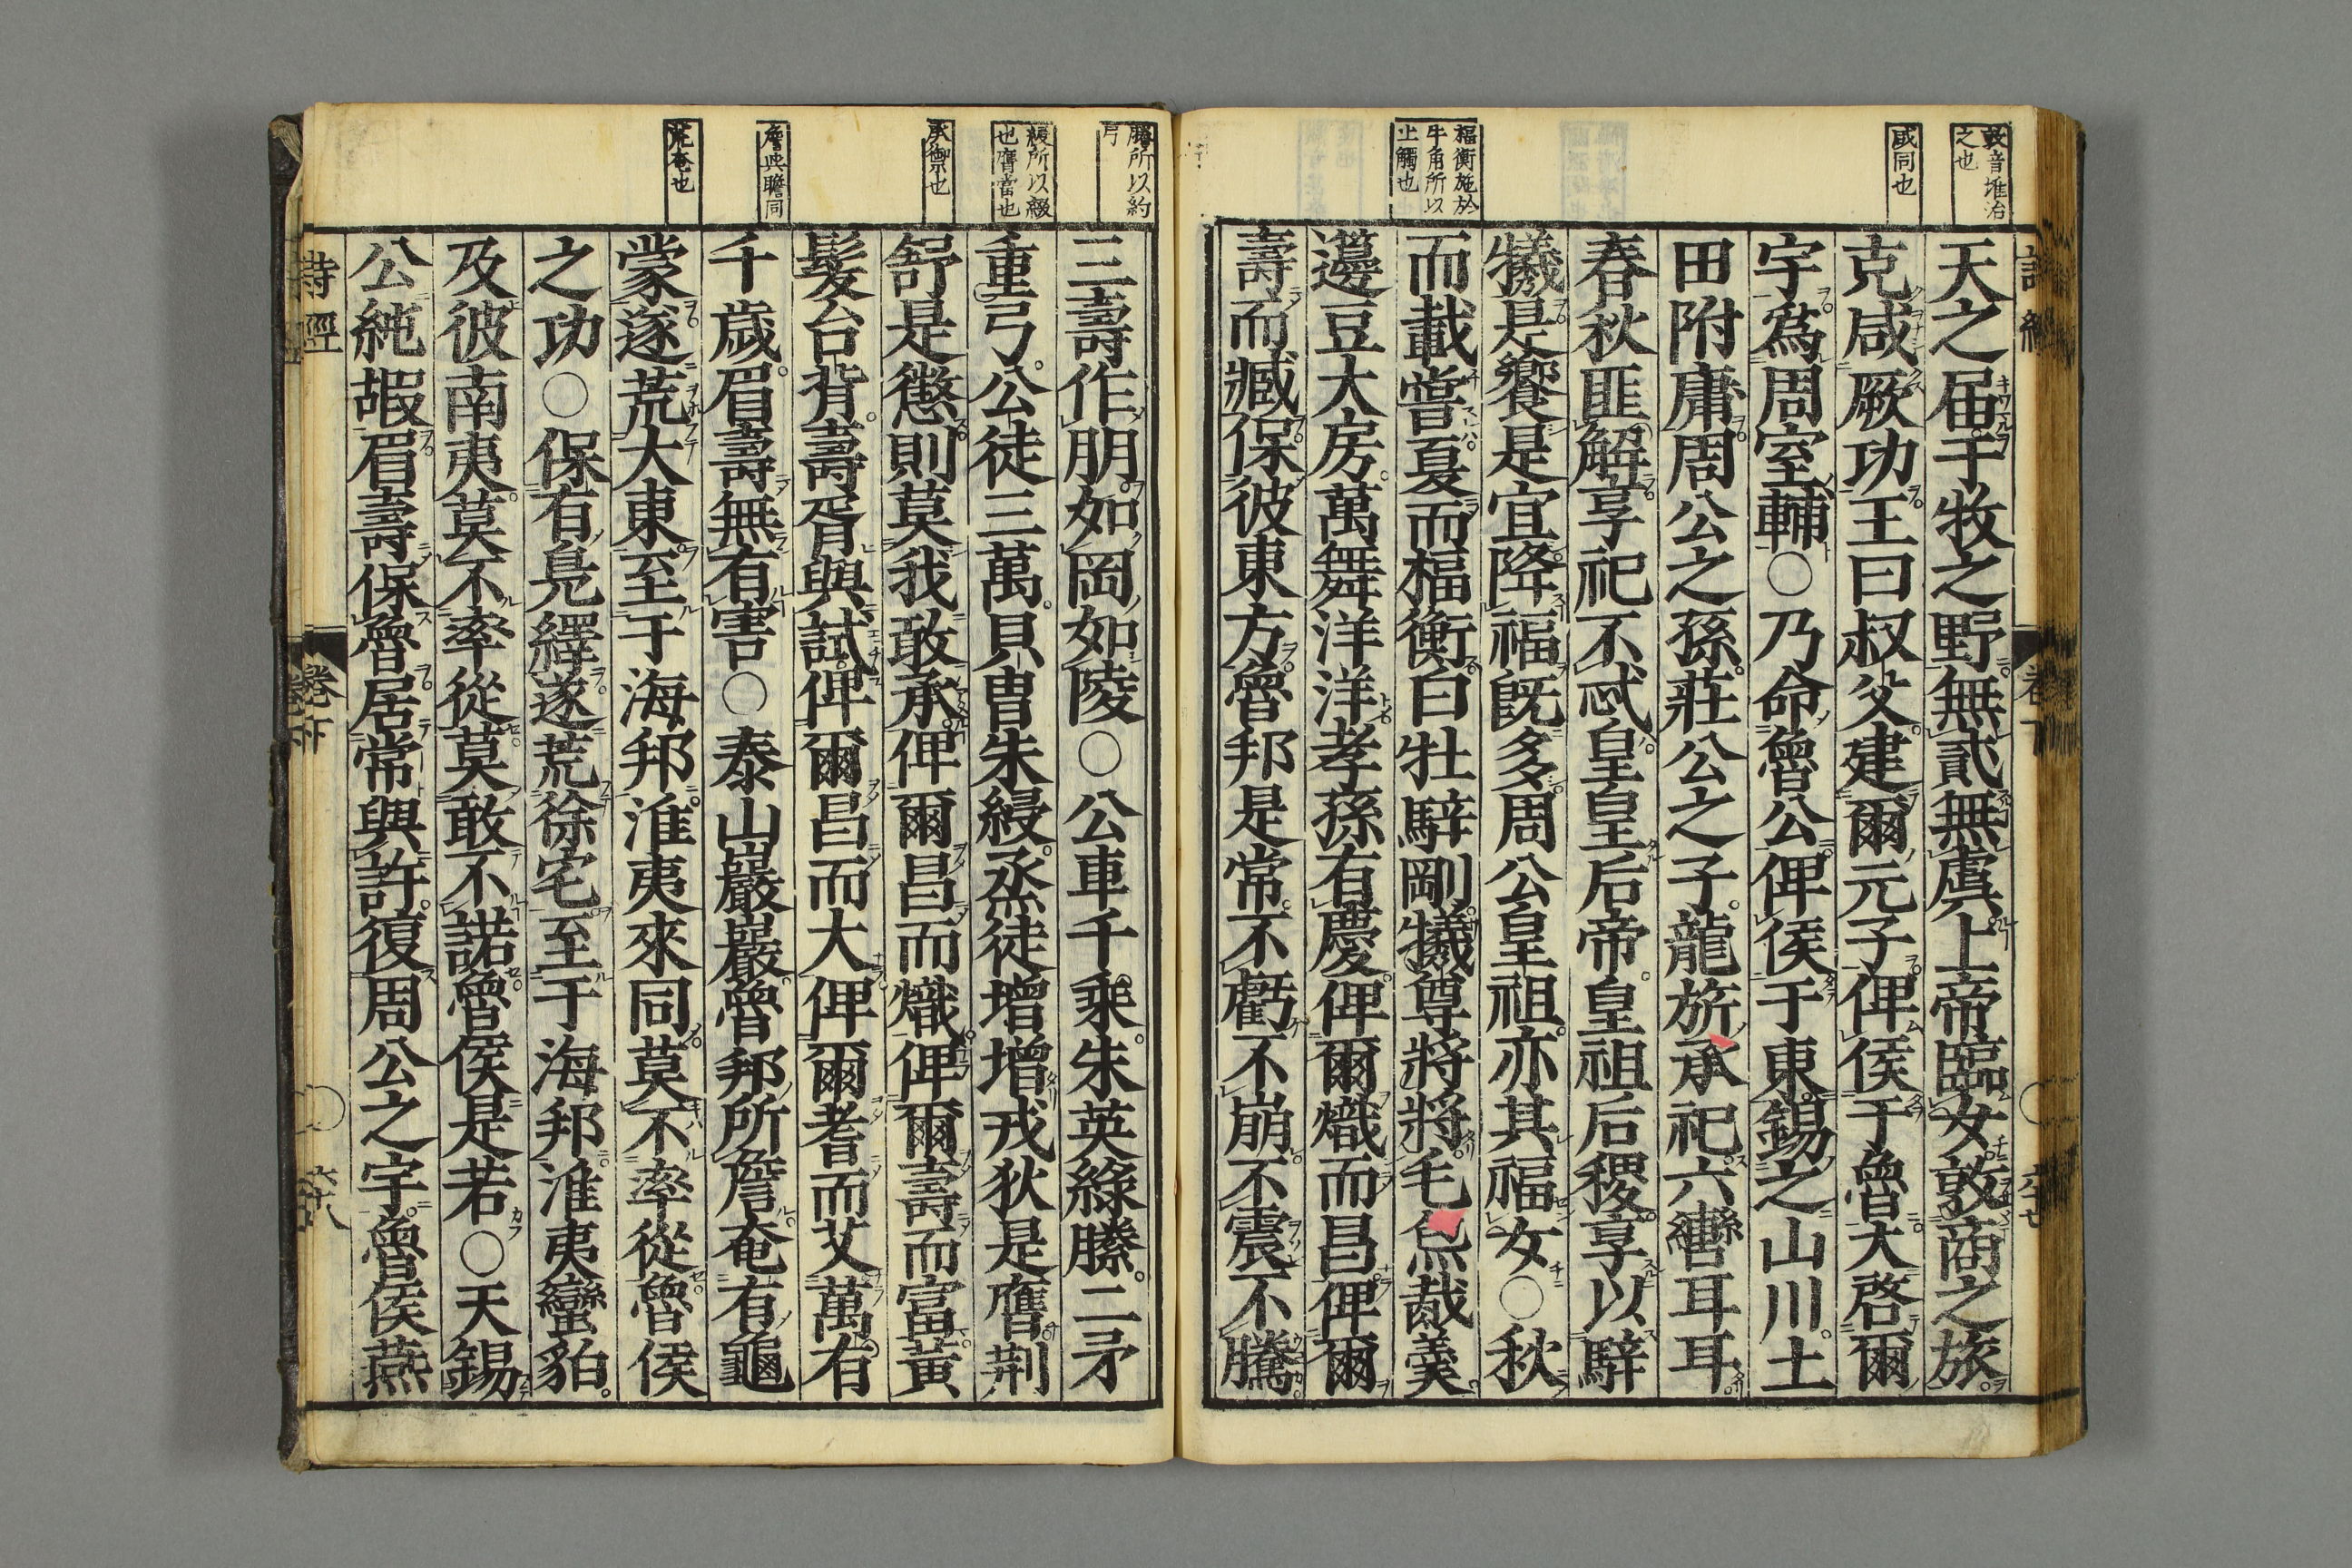 敦音堆治
之也
咸同也
楅衡施於
牛角所以
止觸也
天之届于牧之野無貳無虞上帝臨女敦商之旅
克咸厥功王曰叔父建爾元子俾侯于魯大啓爾
宇爲周室輔○乃命魯公俾侯于東錫之山川土
田附庸周公之孫莊公之子龍旂承祀六轡耳耳
春秋匪解享祀不忒皇皇后帝皇祖后稷享以騂
犧是饗是宜降福既多周公皇祖亦其福女○秋
而載嘗夏而楅衡白牡騂剛犧尊將將毛炰胾羹
籩豆大房萬舞洋洋孝孫有慶俾爾熾而昌俾爾
壽而臧保彼東方魯邦是常不虧不崩不震不騰
縢所以約
弓
綅所以綴
也膺當也
承禦也
詹與瞻同
荒奄也
三壽作朋如岡如陵○公車千乘朱英綠縢二矛
重弓公徒三萬貝冑朱綅烝徒增增戎狄是膺荆
舒是懲則莫我敢承俾爾昌而熾俾爾壽而富黃
髮台背壽胥與試俾爾昌而大俾爾耆而艾萬有
千歲眉壽無有害○泰山巖巖魯邦所詹奄有龜
蒙遂荒大東至于海邦淮夷來同莫不率從魯侯
之功○保有鳧繹遂荒徐宅至于海邦淮夷蠻貊
及彼南夷莫不率從莫敢不諾魯侯是若○天錫
公純嘏眉壽保魯居常與許復周公之宇魯侯燕
詩經
卷下
六十八